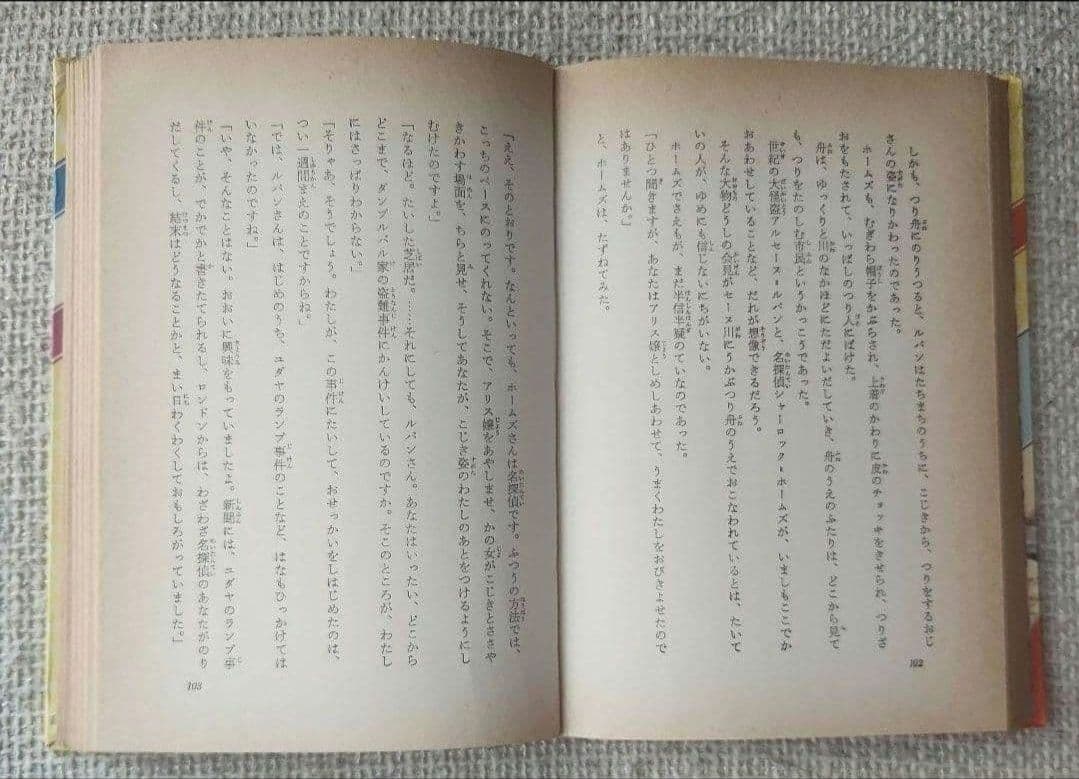 しかも、つり舟にのりうつると、ルパンはたちまちのうちに、こじきから、つりをするおじ
さんの姿になりかわったのであった。
ホームズも、むぎわら帽子をかぶらされ、上着のかわりに皮のチョッキをきせられ、つりざ
おをもたされて、いっぱしのつり人にばけた。
舟は、ゆっくりと川のなかほどにただよいだしていき、舟のうえのふたりは、どこから見て
も、つりをたのしむ市民というかっこうであった。
世紀の大怪盗アルセーヌ＝ルパンと、名探偵シャーロック＝ホームズが、いましもここでか
おあわせしていることなど、だれが想像できるだろう。
そんな大物どうしの会見がセーヌ川にうかぶつり舟のうえでおこなわれているとは、たいて
いの人が、ゆめにも信じないにちがいない。
ホームズでさえもが、まだ半信半疑のていなのであった。
「ひとつ聞きますが、あなたはアリス嬢としめしあわせて、うまくわたしをおびきよせたので
はありませんか。」
と、ホームズは、たずねてみた。
102
「ええ、そのとおりです。なんといっても、ホームズさんは名探偵です。ふつうの方法では、
こっちのペースにのってくれない。そこで、アリス嬢をあやしませ、かの女がこじきとささや
きかわす場面を、ちらと見せ、そうしてあなたが、こじき姿のわたしのあとをつけるようにし
むけたのですよ。」
「なるほど。たいした芝居だ。それにしても、ルパンさん。あなたはいったい、どこから
どこまで、ダンブルバル家の盗難事件にかんけいしているのですか。そこのところが、わたし
にはさっぱりわからない。」
「そりゃあ、そうでしょう。わたしが、この事件にたいして、おせっかいをしはじめたのは、
つい一週間まえのことですからね。」
「では、ルパンさんは、はじめのうち、ユダヤのランプ事件のことなど、はなもひっかけては
いなかったのですね。」
「いや、そんなことはない。おおいに興味をもっていましたよ。新聞には、ユダヤのランプ事
件のことが、でかでかと書きたてられるし、ロンドンからは、わざわざ名探偵のあなたがのり
だしてくるし、結末はどうなることかと、まい日わくわくしておもしろがっていました。」
103